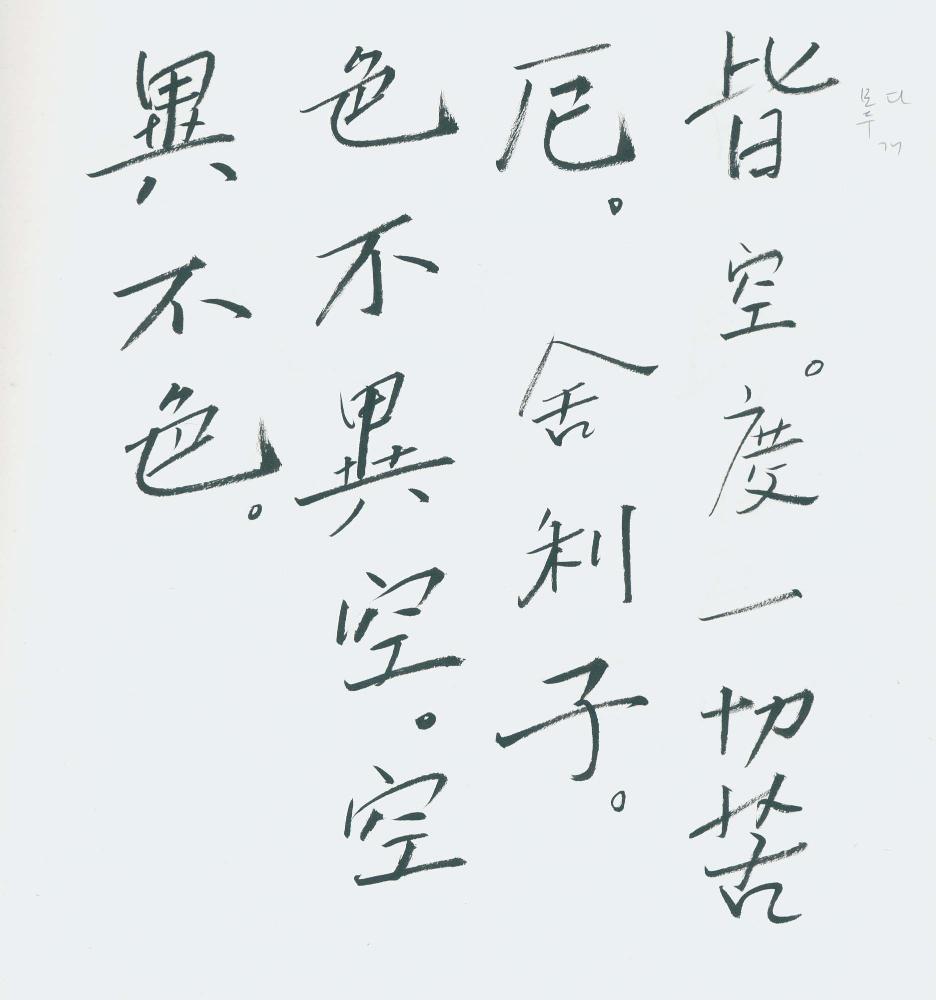 皆空。度一切苦
厄。舍利子。
色不異空。空
異不色。
모두
다
개